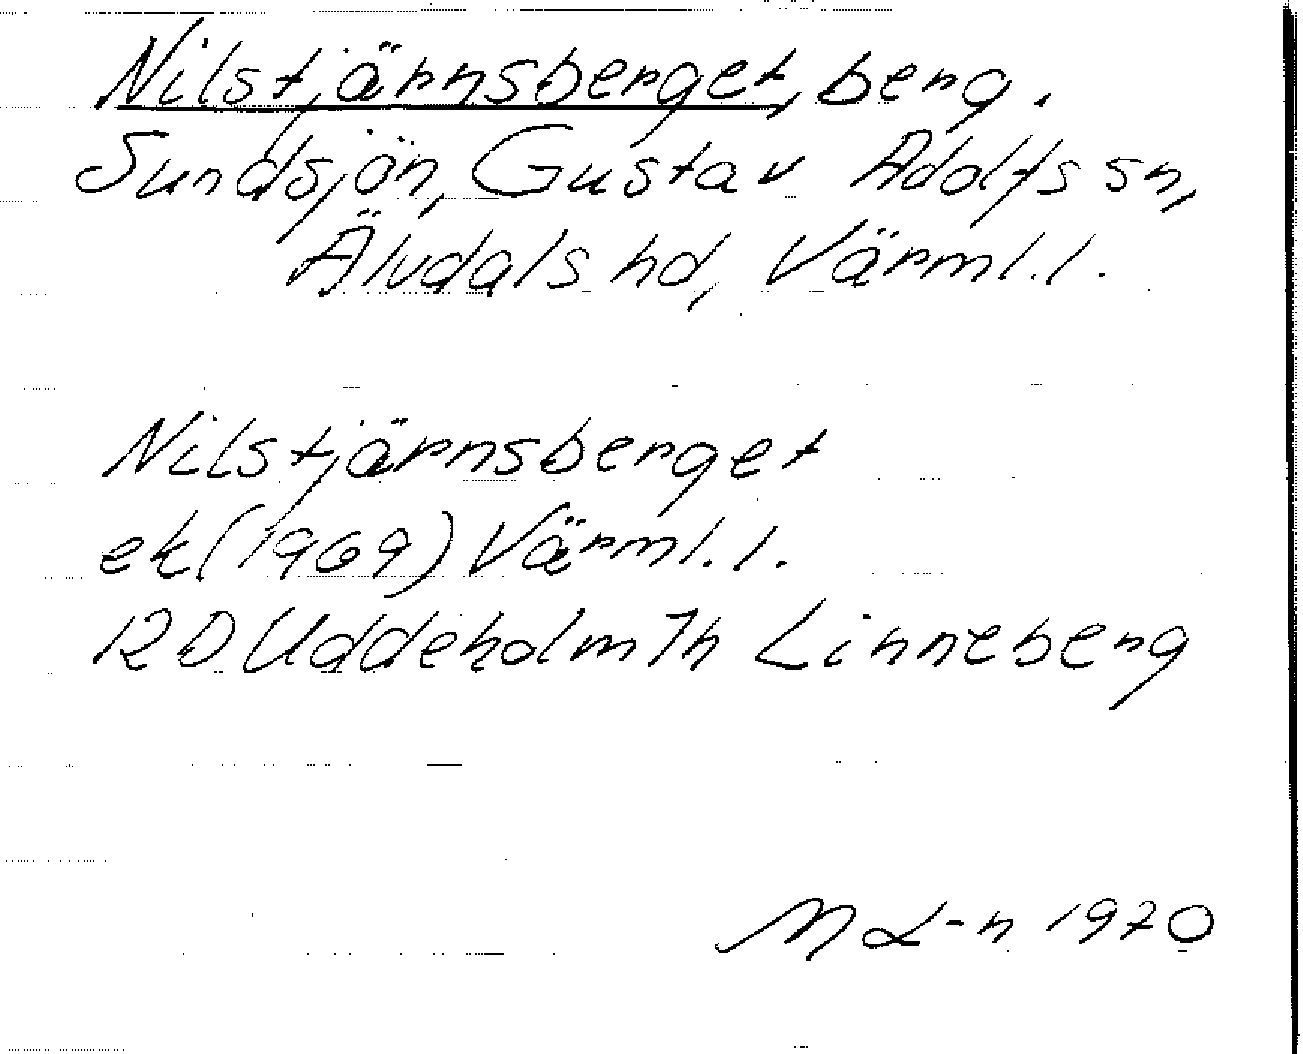 Nilstjärnsberget, berg.
Sundsjön, Gustav Adolfs sn,
Älvdals hd, Värml.l.
Nilstjärnsberget
ek (1969) Värml.l.
12D Uddeholm 7h Linneberg
1970